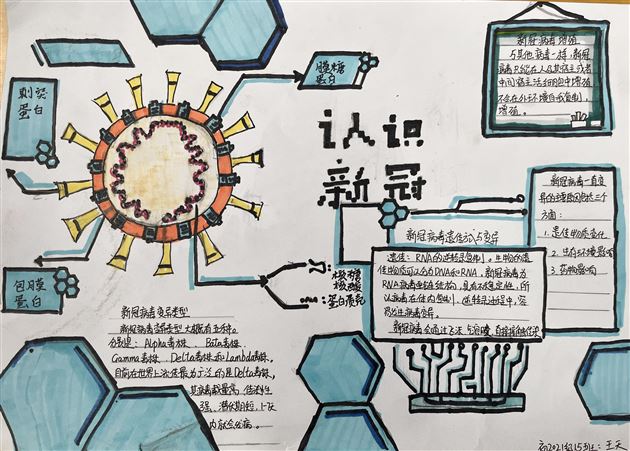 刺突
蛋白
膜糖
蛋白
包膜
蛋白
核糖
核酸
蛋白质
认识
新冠
新冠病毒增殖
与其他病毒一样,新冠
病毒只能在人及其宿主或者
中间宿主活细胞中增殖
不会在外环境自我复制,
增殖。
新冠病毒一直变
异的主要原因于三个
方面:
1. 遗传物质变化
2. 生存环境影响
3. 药物影响
新冠病毒遗传方式与变异
遗传:RNA的逆转录复制。生物的遗
传物质可以分为DNA和RNA,新冠病毒为
RNA病毒单链结构,具有不稳定性,所
以病毒在体内复制、逆转录过程中,容
易发生病毒变异。
新冠病毒会通过飞沫、气溶胶、直接接触传染
新冠病毒变异类型
新冠病毒变异类型大概有五种。
分别是:Alpha毒株、Beta毒株、
Gamma毒株、Delta毒株和Lambda毒株。
目前在世界上流传最为广泛的是Delta毒株,
其病毒载量高、传染性
强、潜伏期短,1-2天
内就会发病。
初2021级15班:王天